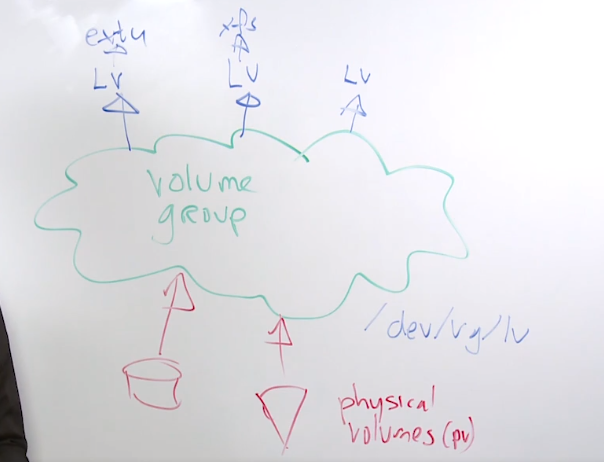 ext4
xfs
LV
LV
LV
volume
group
/dev/vg/lv
physical
volumes (pv)